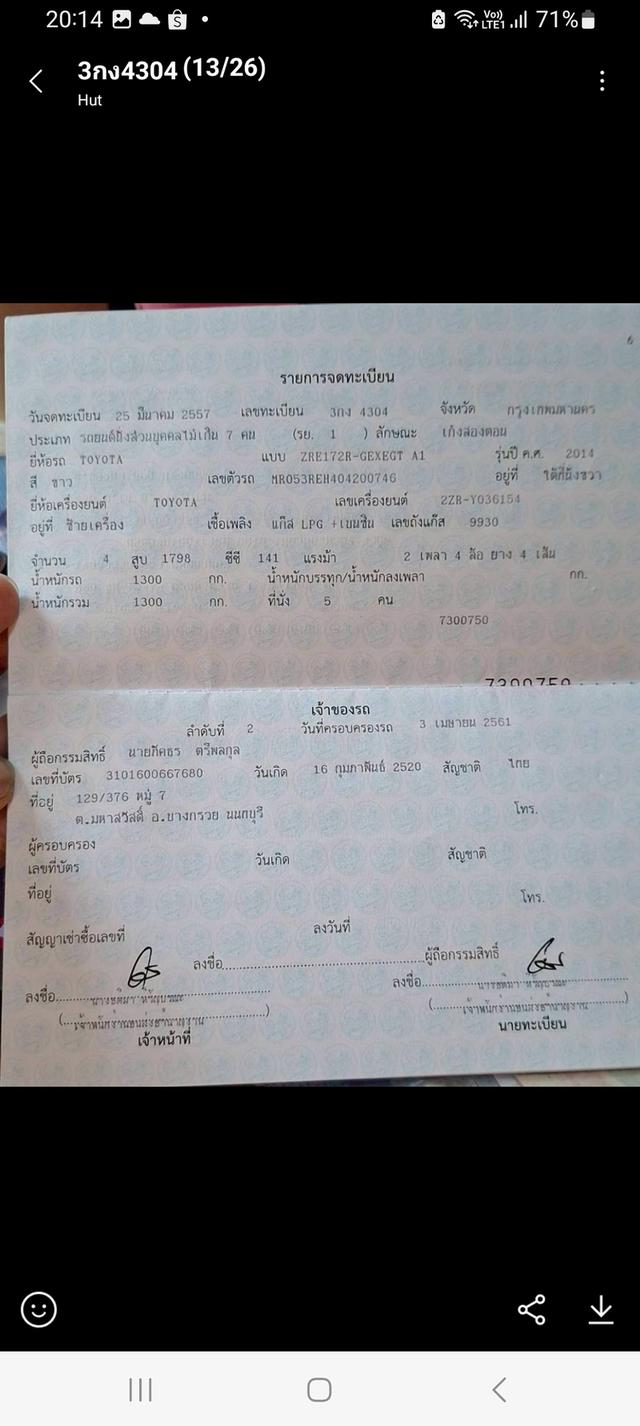 20:14 71%
3กง4304 (13/26)
Hut
รายการจดทะเบียน
วันจดทะเบียน 25 มีนาคม 2557 เลขทะเบียน 3กง 4304 จังหวัด กรุงเทพมหานคร
ประเภท รถยนต์นั่งส่วนบุคคลไม่เกิน 7 คน (รย. 1 ) ลักษณะ เก๋งสองตอน
ยี่ห้อรถ TOYOTA แบบ ZRE172R-GEXEGT A1 รุ่นปี ค.ศ. 2014
สี ขาว เลขตัวรถ MR053REH404200746 อยู่ที่ ใต้ที่นั่งขวา
ยี่ห้อเครื่องยนต์ TOYOTA เลขเครื่องยนต์ 2ZR-Y036154
อยู่ที่ ซ้ายเครื่อง เชื้อเพลิง แก๊ส LPG +เบนซิน เลขถังแก๊ส 9930
จำนวน 4 สูบ 1798 ซีซี 141 แรงม้า 2 เพลา 4 ล้อ ยาง 4 เส้น
น้ำหนักรถ 1300 กก. น้ำหนักบรรทุก/น้ำหนักลงเพลา กก.
น้ำหนักรวม 1300 กก. ที่นั่ง 5 คน
7300750
7300750
เจ้าของรถ
ลำดับที่ 2 วันที่ครอบครองรถ 3 เมษายน 2561
ผู้ถือกรรมสิทธิ์ นายภีคธร ตรีพลกุล
เลขที่บัตร 3101600667680 วันเกิด 16 กุมภาพันธ์ 2520 สัญชาติ ไทย
ที่อยู่ 129/376 หมู่ 7 โทร.
ต.มหาสวัสดิ์ อ.บางกรวย นนทบุรี
ผู้ครอบครอง
เลขที่บัตร วันเกิด สัญชาติ
ที่อยู่ โทร.
สัญญาเช่าซื้อเลขที่ ลงวันที่
ลงชื่อ ผู้ถือกรรมสิทธิ์
ลงชื่อ ลงชื่อ
เจ้าหน้าที่ นายทะเบียน